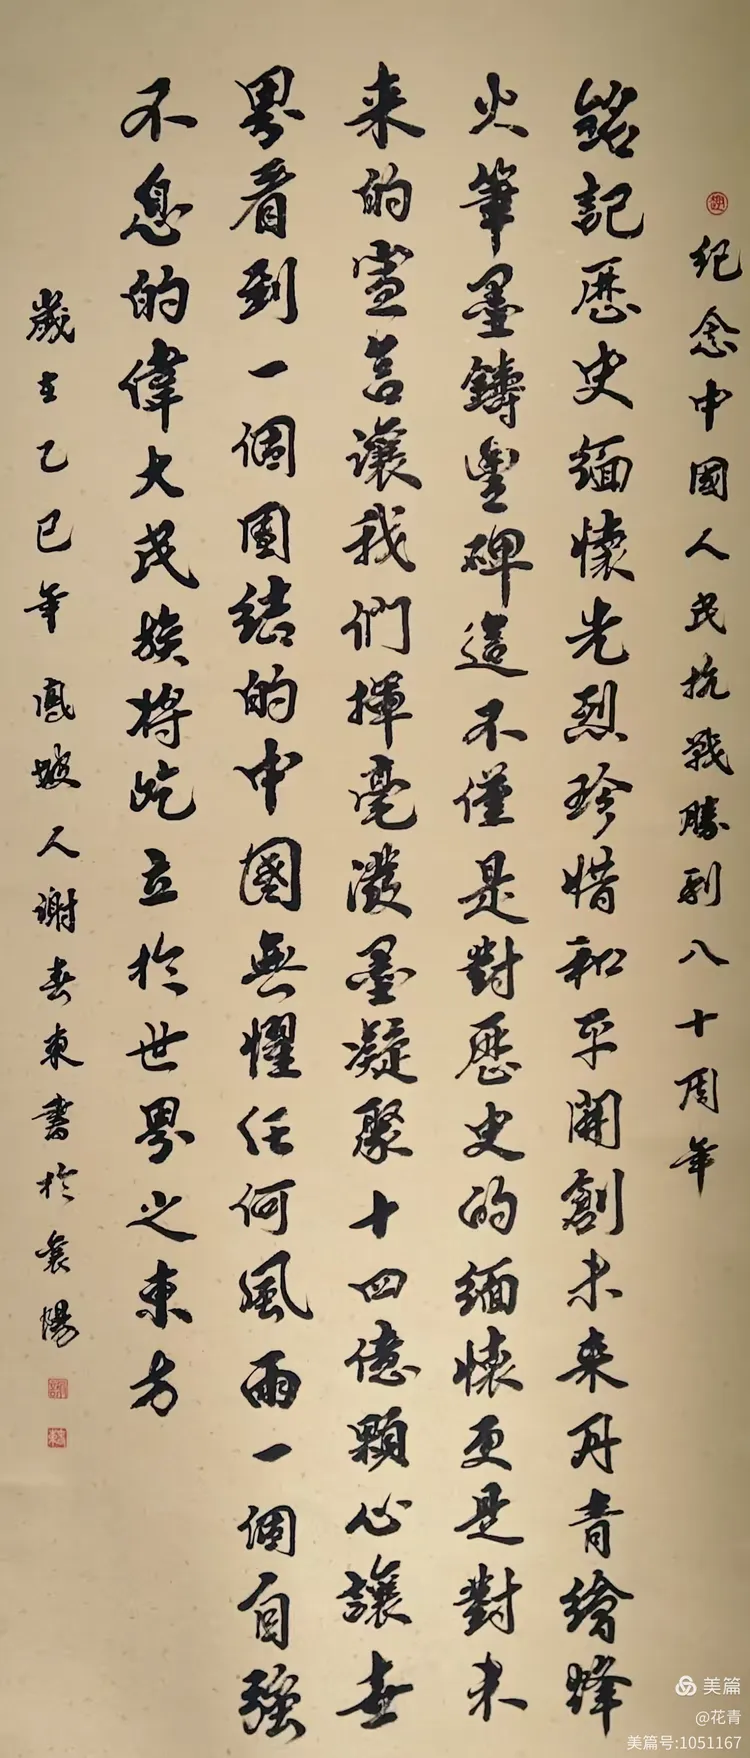 紀念中國人民抗戰勝利八十周年
銘記歷史緬懷先烈珍惜和平開創未来丹青繪烽
火筆墨鑄豐碑這不僅是對歷史的緬懷更是對未
来的宣言讓我們揮毫潑墨凝聚十四億顆心讓世
界看到一個團結的中國無懼任何風雨一個自強
不息的偉大民族将屹立於世界之東方
歲在乙巳年鳳坡人謝春東書於襄陽
美篇
@花青
美篇号:1051167